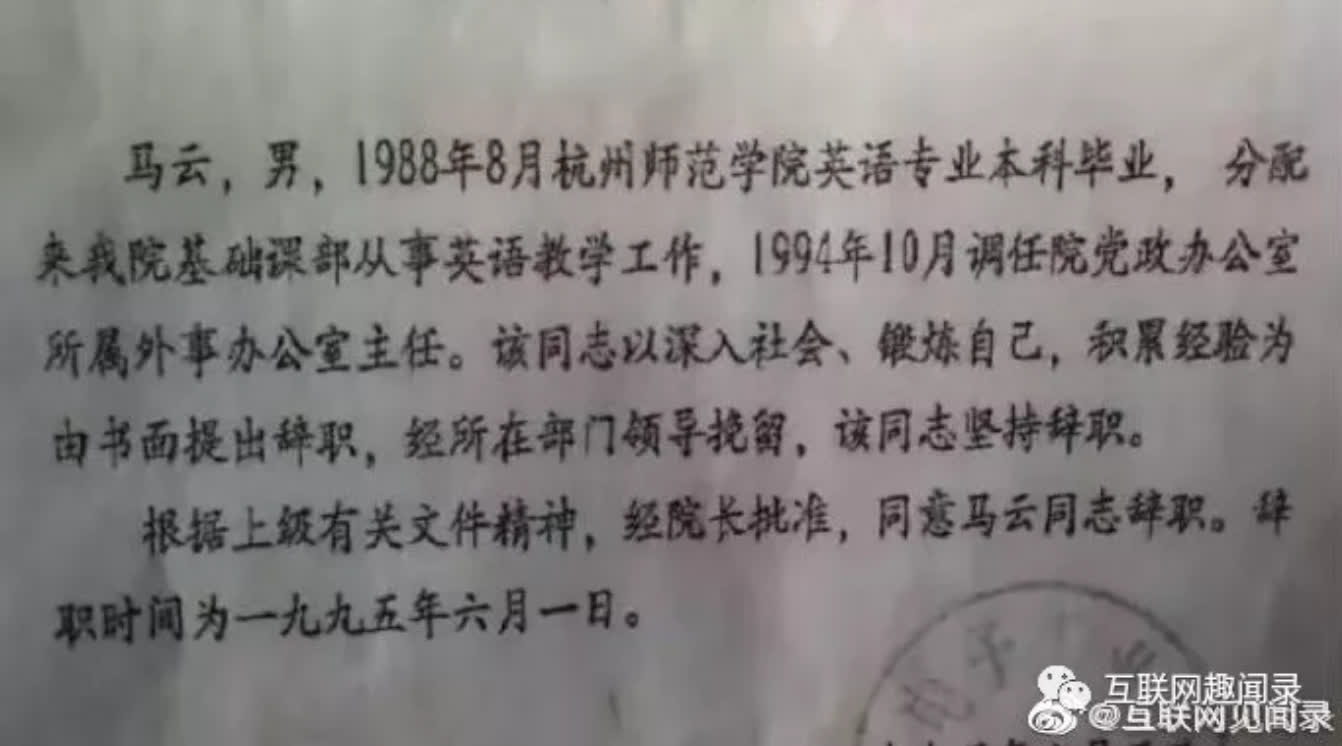 马云，男，1988年8月杭州师范学院英语专业本科毕业，分配
来我院基础课部从事英语教学工作，1994年10月调任院党政办公室
所属外事办公室主任。该同志以深入社会、锻炼自己，积累经验为
由书面提出辞职，经所在部门领导挽留，该同志坚持辞职。
根据上级有关文件精神，经院长批准，同意马云同志辞职。辞
职时间为一九九五年六月一日。
子
互联网趣闻录
@互联网见闻录